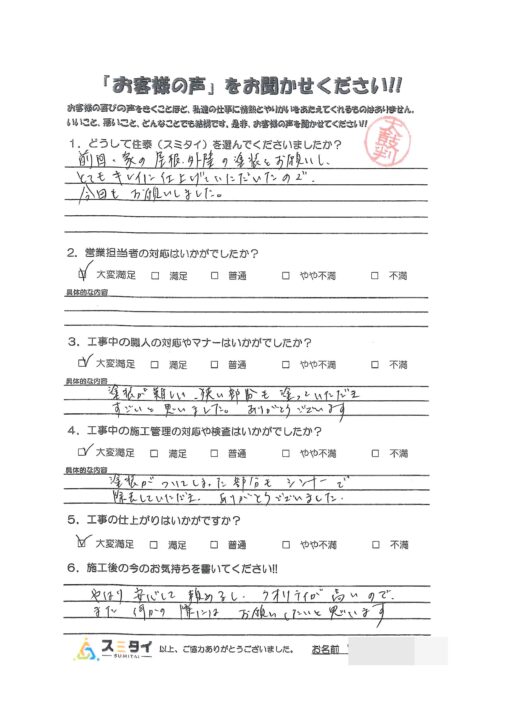 「お客様の声」をお聞かせください!!
お客様の喜びの声をきくことほど、私達の仕事に情熱とやりがいをあたえてくれるものはありません。
いいこと、悪いこと、どんなことでも結構です。是非、お客様の声を聞かせてください!!
太鼓判
1．どうして住泰（スミタイ）を選んでくださいましたか？
前回・家の屋根・外壁の塗装をお願いし、
とてもキレイに仕上げていただいたので、
今回もお願いしました。
2．営業担当者の対応はいかがでしたか？
☑ 大変満足 □ 満足 □ 普通 □ やや不満 □ 不満
具体的な内容
3．工事中の職人の対応やマナーはいかがでしたか？
☑ 大変満足 □ 満足 □ 普通 □ やや不満 □ 不満
具体的な内容
塗装が難しい、狭い部分も塗っていただき
すごいと思いました。ありがとうございます
4．工事中の施工管理の対応や検査はいかがでしたか？
☑ 大変満足 □ 満足 □ 普通 □ やや不満 □ 不満
具体的な内容
塗装がついてしまった部分もシンナーで
除去していただき、ありがとうございました。
5．工事の仕上がりはいかがですか？
☑ 大変満足 □ 満足 □ 普通 □ やや不満 □ 不満
6．施工後の今のお気持ちを書いてください!!
やはり安心して頼めるし、クオリティが高いので、
また何かの際にはお願いしたいと思います
スミタイ
SUMITAI
以上、ご協力ありがとうございました。 お名前